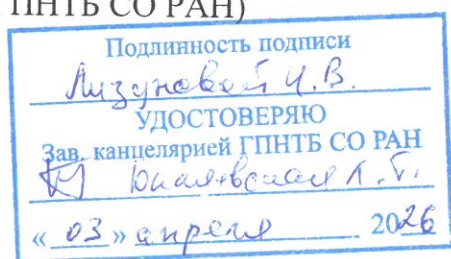 ПНТБ СО РАН)
Подлинность подписи
Лизуновой И.В.
УДОСТОВЕРЯЮ
Зав. канцелярией ГПНТБ СО РАН
« 03 » апреля 2026